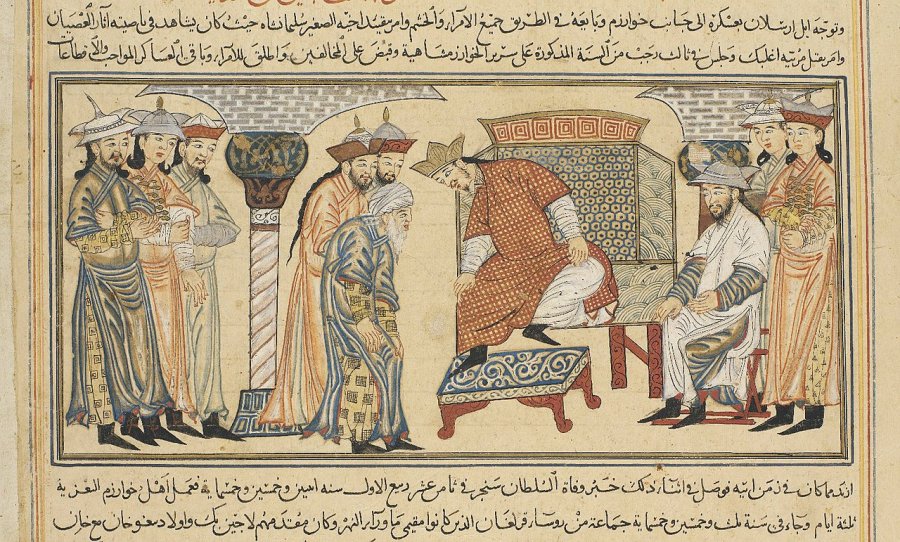 وتوجه ايل ارسلان بعسكره الى جانب خوارزم وبايعه في الطريق جميع الامراء والحشم وامر بقيد اخيه الصغير سلمان شاه حيث كان يشاهد في ناصيته آثار العصيان
وامر بقتل مربيه اغلبك وجلس في ثالث رجب من السنة المذكورة على سرير الخوارزمشاهية وقبض على المخالفين واطلق للامراء وباقي العساكر المواجب والاقطاعات
ازيد مما كان في زمن ابيه فوصل في اثناء ذلك خبر وفاة السلطان سنجر في ثامن عشر ربيع الاول سنه اثنين وخمسين وخمسماية فعمل اهل خوارزم التعزية
ثلثة ايام وجاء في سنة ثلث وخمسين وخمسماية جماعة من روساء قرلغان الذين كانوا مقيمي ماوراء النهر وكان مقدمهم لاجين بك واولاد بيغو خان مع خان